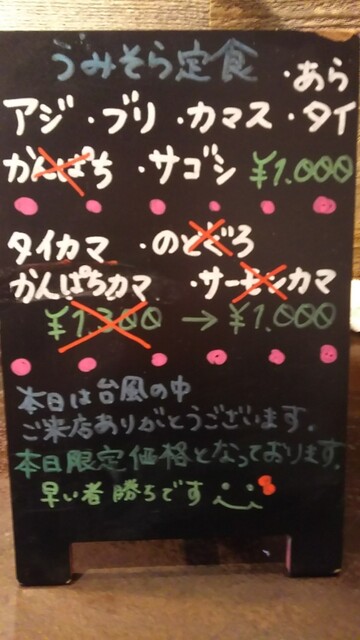 うみそら定食
・あら
アジ・ブリ・カマス・タイ
かんぱち ・サゴシ ¥1.000
タイカマ ・のどぐろ
かんぱちカマ ・サーモンカマ
¥1.300 → ¥1.000
本日は台風の中
ご来店ありがとうございます。
本日限定価格となっております。
早い者勝ちです